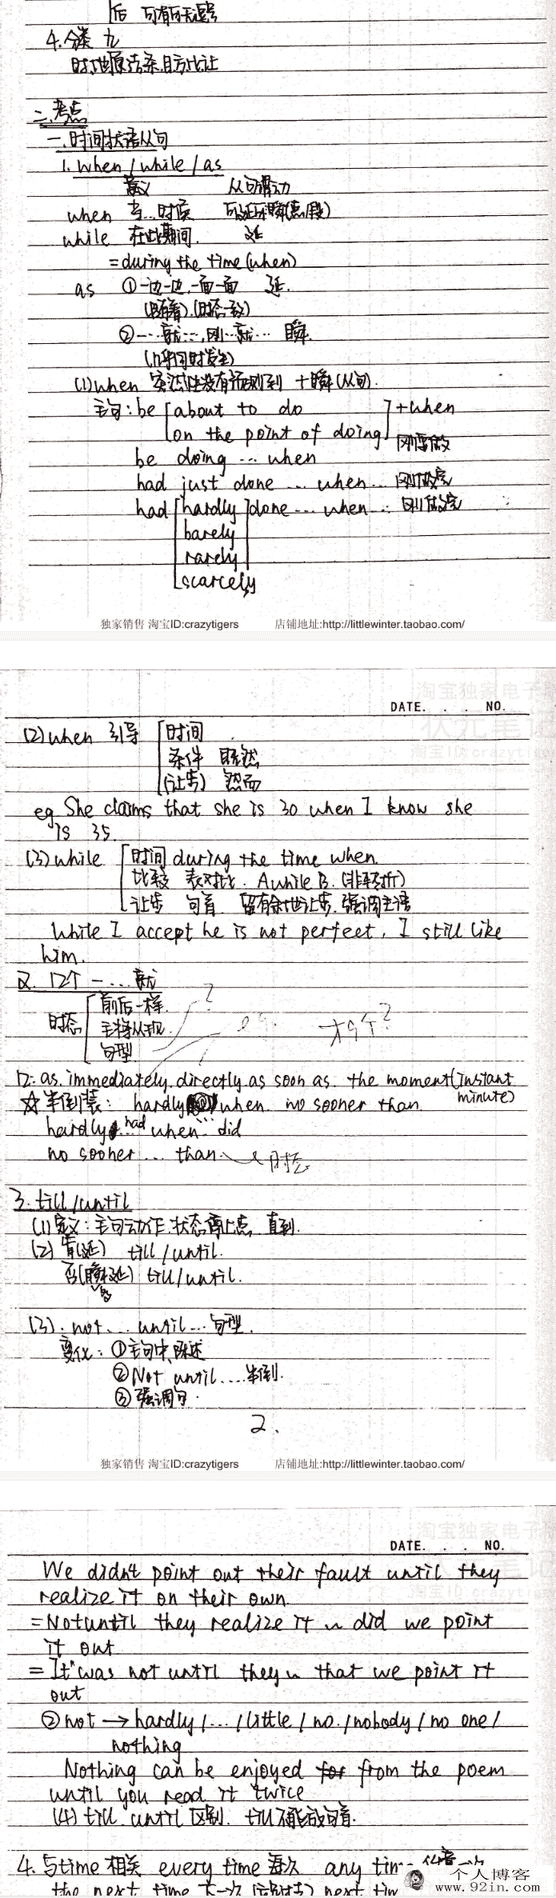 后 可有可无逗号
4.分类 九
时地原结条目方比让
二.考点
一.时间状语从句
1. when / while / as
意义 从句谓动
when 当…时候 可延可瞬(点/段)
while 在此期间. 延
= during the time (when)
as ①一边一边,一面一面 延.
(随着).(时态一致)
②一…就…,刚…就… 瞬.
(几乎同时发生)
(1) when 突然性没有预料到 + 瞬(从句).
主句: be [about to do
on the point of doing] + when 刚要做
be doing … when
had just done … when … 刚做完
had [hardly] done … when … 刚做完
barely
rarely
scarcely
独家销售 淘宝ID:crazytigers 店铺地址:http://littlewinter.taobao.com/
DATE. . . NO.
(2) when 引导 [时间
条件 既然
(让步) 然而
eg She claims that she is 30 when I know she
is 35.
(3) while [时间 during the time when
比较 表对比. A while B. (非转折)
让步 句首 留有余地让步.强调主语
While I accept he is not perfect, I still like
him.
2. 12个 一…就
时态 [前后一样. ?
主将从现 才9个?
句型
12: as. immediately. directly. as soon as. the moment (instant
minute)
☆半倒装: hardly when. no sooner than.
hardly had … when … did
no sooner … than. 时态
3. till / until
(1) 定义: 主句动作.状态停止点 直到.
(2) 肯(延) till / until.
否(瞬延) till / until.
(3). not … until … 句型.
变化: ①主句中.陈述
②Not until … 半倒.
③强调句.
2.
独家销售 淘宝ID:crazytigers 店铺地址:http://littlewinter.taobao.com/
DATE. . . NO.
We didn't point out their fault until they
realize it on their own.
= Not until they realize it ~ did we point
it out
= It was not until they ~ that we point it
out
② not → hardly / … / little / no / nobody / no one /
nothing
Nothing can be enjoyed from the poem
until you read it twice
(4) till. until 区别. till不能放句首.
4. 与time 相关 every time 每次 any tim
the next time 下一次 next tim
个人博客
www.92in.com